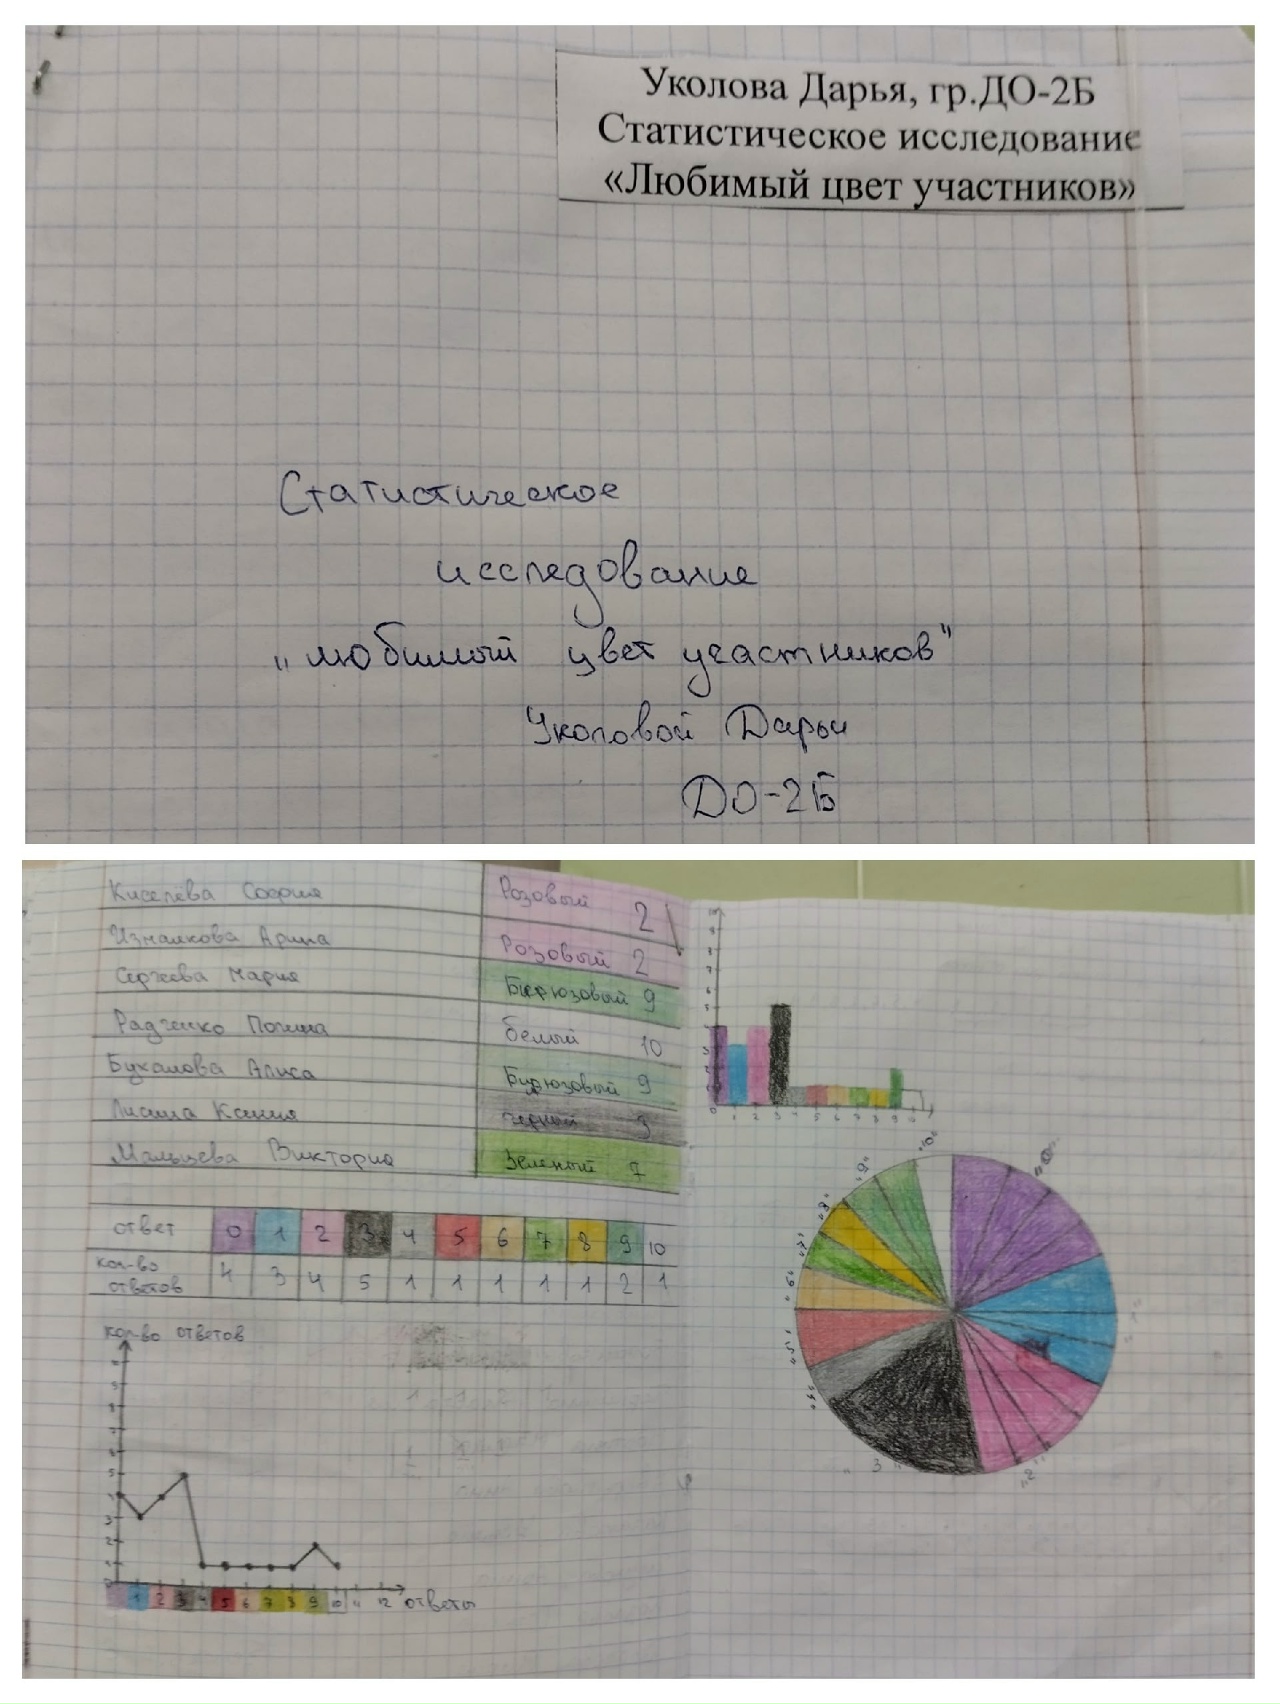 Уколова Дарья, гр.ДО-2Б
Статистическое исследование
«Любимый цвет участников»
Статистическое
исследование
"любимый цвет участников"
Уколовой Дарьи
ДО-2Б
Киселёва София Розовый 2
Измалкова Арина Розовый 2
Сергеева Мария Бирюзовый 9
Радченко Полина белый 10
Бухалова Алиса Бирюзовый 9
Ксения черный 3
Мальцева Виктория Зеленый 7
ответ 0 1 2 3 4 5 6 7 8 9 10
кол-во ответов 4 3 4 5 1 1 1 1 1 2 1
кол-во ответов
5
4
3
2
1
1 2 3 4 5 6 7 8 9 10 11 12 ответы
0 1 2 3 4 5 6 7 8 9
"10"
"9"
"0"
"8"
"7"
"6"
"1"
"5"
"4"
"3"
"2"